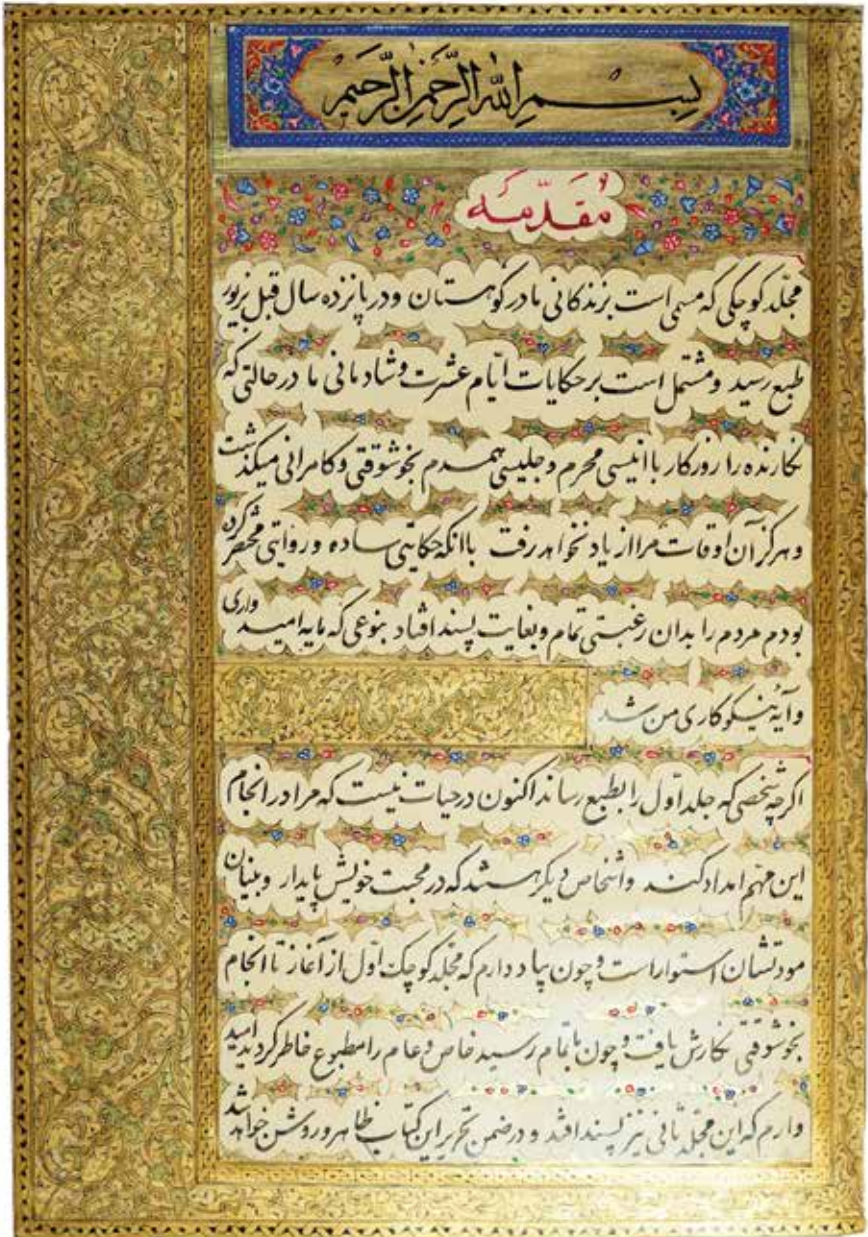 بِسْمِ اللهِ الرَّحْمٰنِ الرَّحیمِ
مُقَدّمه
مجلّد کوچکی که مسمی است بزندکانی ما در کوهستان و در پانزده سال قبل بزیور
طبع رسید و مشتمل است بر حکایات ایّام عشرت و شادمانی ما در حالتی که
نکارنده را روزکار با انیسی محرم و جلیسی همدم بخوشوقتی و کامرانی میکذشت
و هرکز آن اوقات مرا از یاد نخواهد رفت با انکه حکایتی ساده و روایتی مختصر کرده
بودم مردم را بدان رغبتی تمام و بغایت پسند افتاد بنوعی که مایه امیدواری
و آیه نیکوکاری من شد
اکرچه شخصی که جلد اوّل را بطبع رساند اکنون در حیات نیست که مرا در انجام
این مهّم امداد کند و اشخاص دیکر هستند که در محبت خویش پایدار و بنیان
مودتشان استوار است و چون بیاد دارم که مجلّد کوچک اوّل از آغاز تا انجام
بخوشوقتی نکارش یافت و چون باتمام رسید خاص و عام را مطبوع خاطر کردید امید
دارم که این مجلّد ثانی نیز پسند افتد و در ضمن تحریر این کتاب ظاهر و روشن خواهد شد